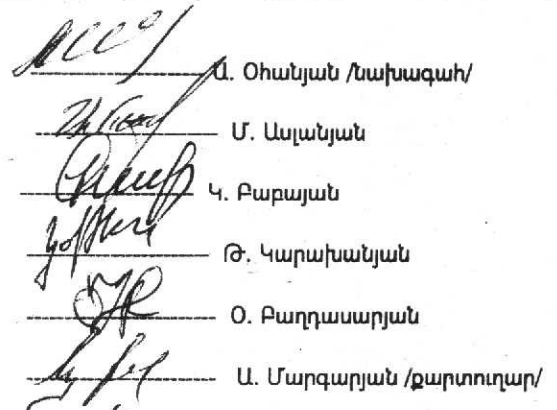 Ա. Օհանյան /նախագահ/
Մ. Ասլանյան
Կ. Բաբայան
Թ. Կարախանյան
Օ. Բաղդասարյան
Ա. Մարգարյան /քարտուղար/